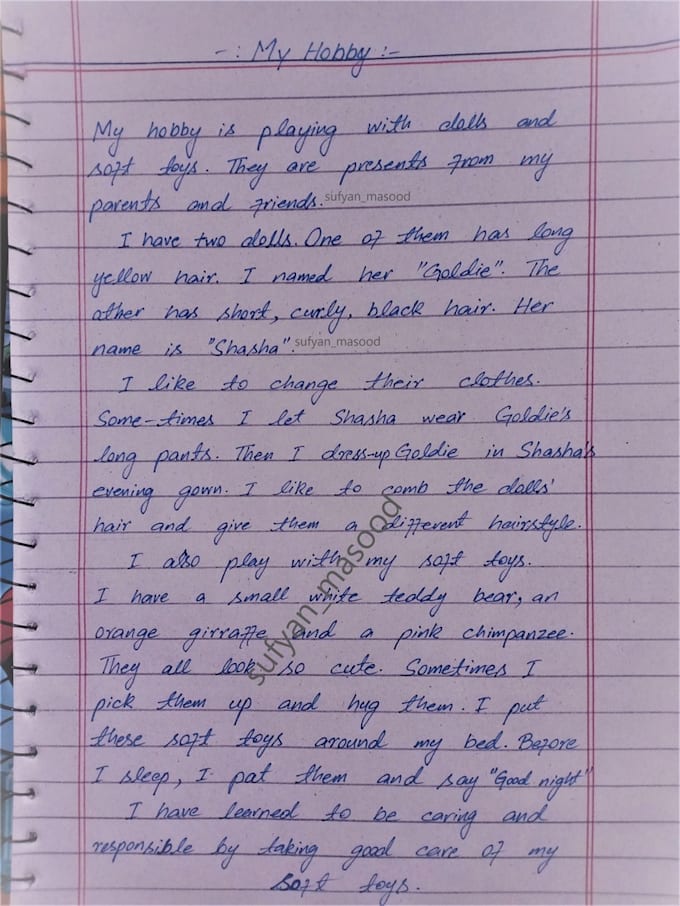 -: My Hobby :-
My hobby is playing with dolls and
soft toys. They are presents from my
parents and friends.
sufyan_masood
I have two dolls. One of them has long
yellow hair. I named her "Goldie". The
other has short, curly, black hair. Her
name is "Shasha".
sufyan_masood
I like to change their clothes.
Some-times I let Shasha wear Goldie's
long pants. Then I dress-up Goldie in Shasha's
evening gown. I like to comb the dolls'
hair and give them a different hairstyle.
I also play with my soft toys.
I have a small white teddy bear, an
orange girraffe and a pink chimpanzee.
They all look so cute. Sometimes I
pick them up and hug them. I put
these soft toys around my bed. Before
I sleep, I pat them and say "Good night"
I have learned to be caring and
responsible by taking good care of my
soft toys.
sufyan_masood